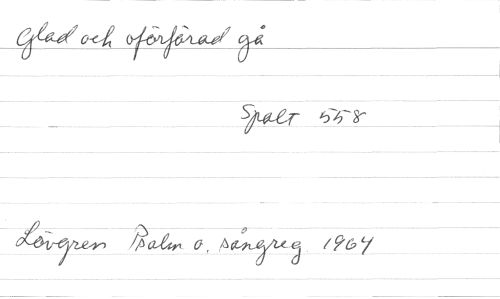 Glad och oförfärad gå
Spalt 558
Lövgren Psalm o. sångreg. 1964